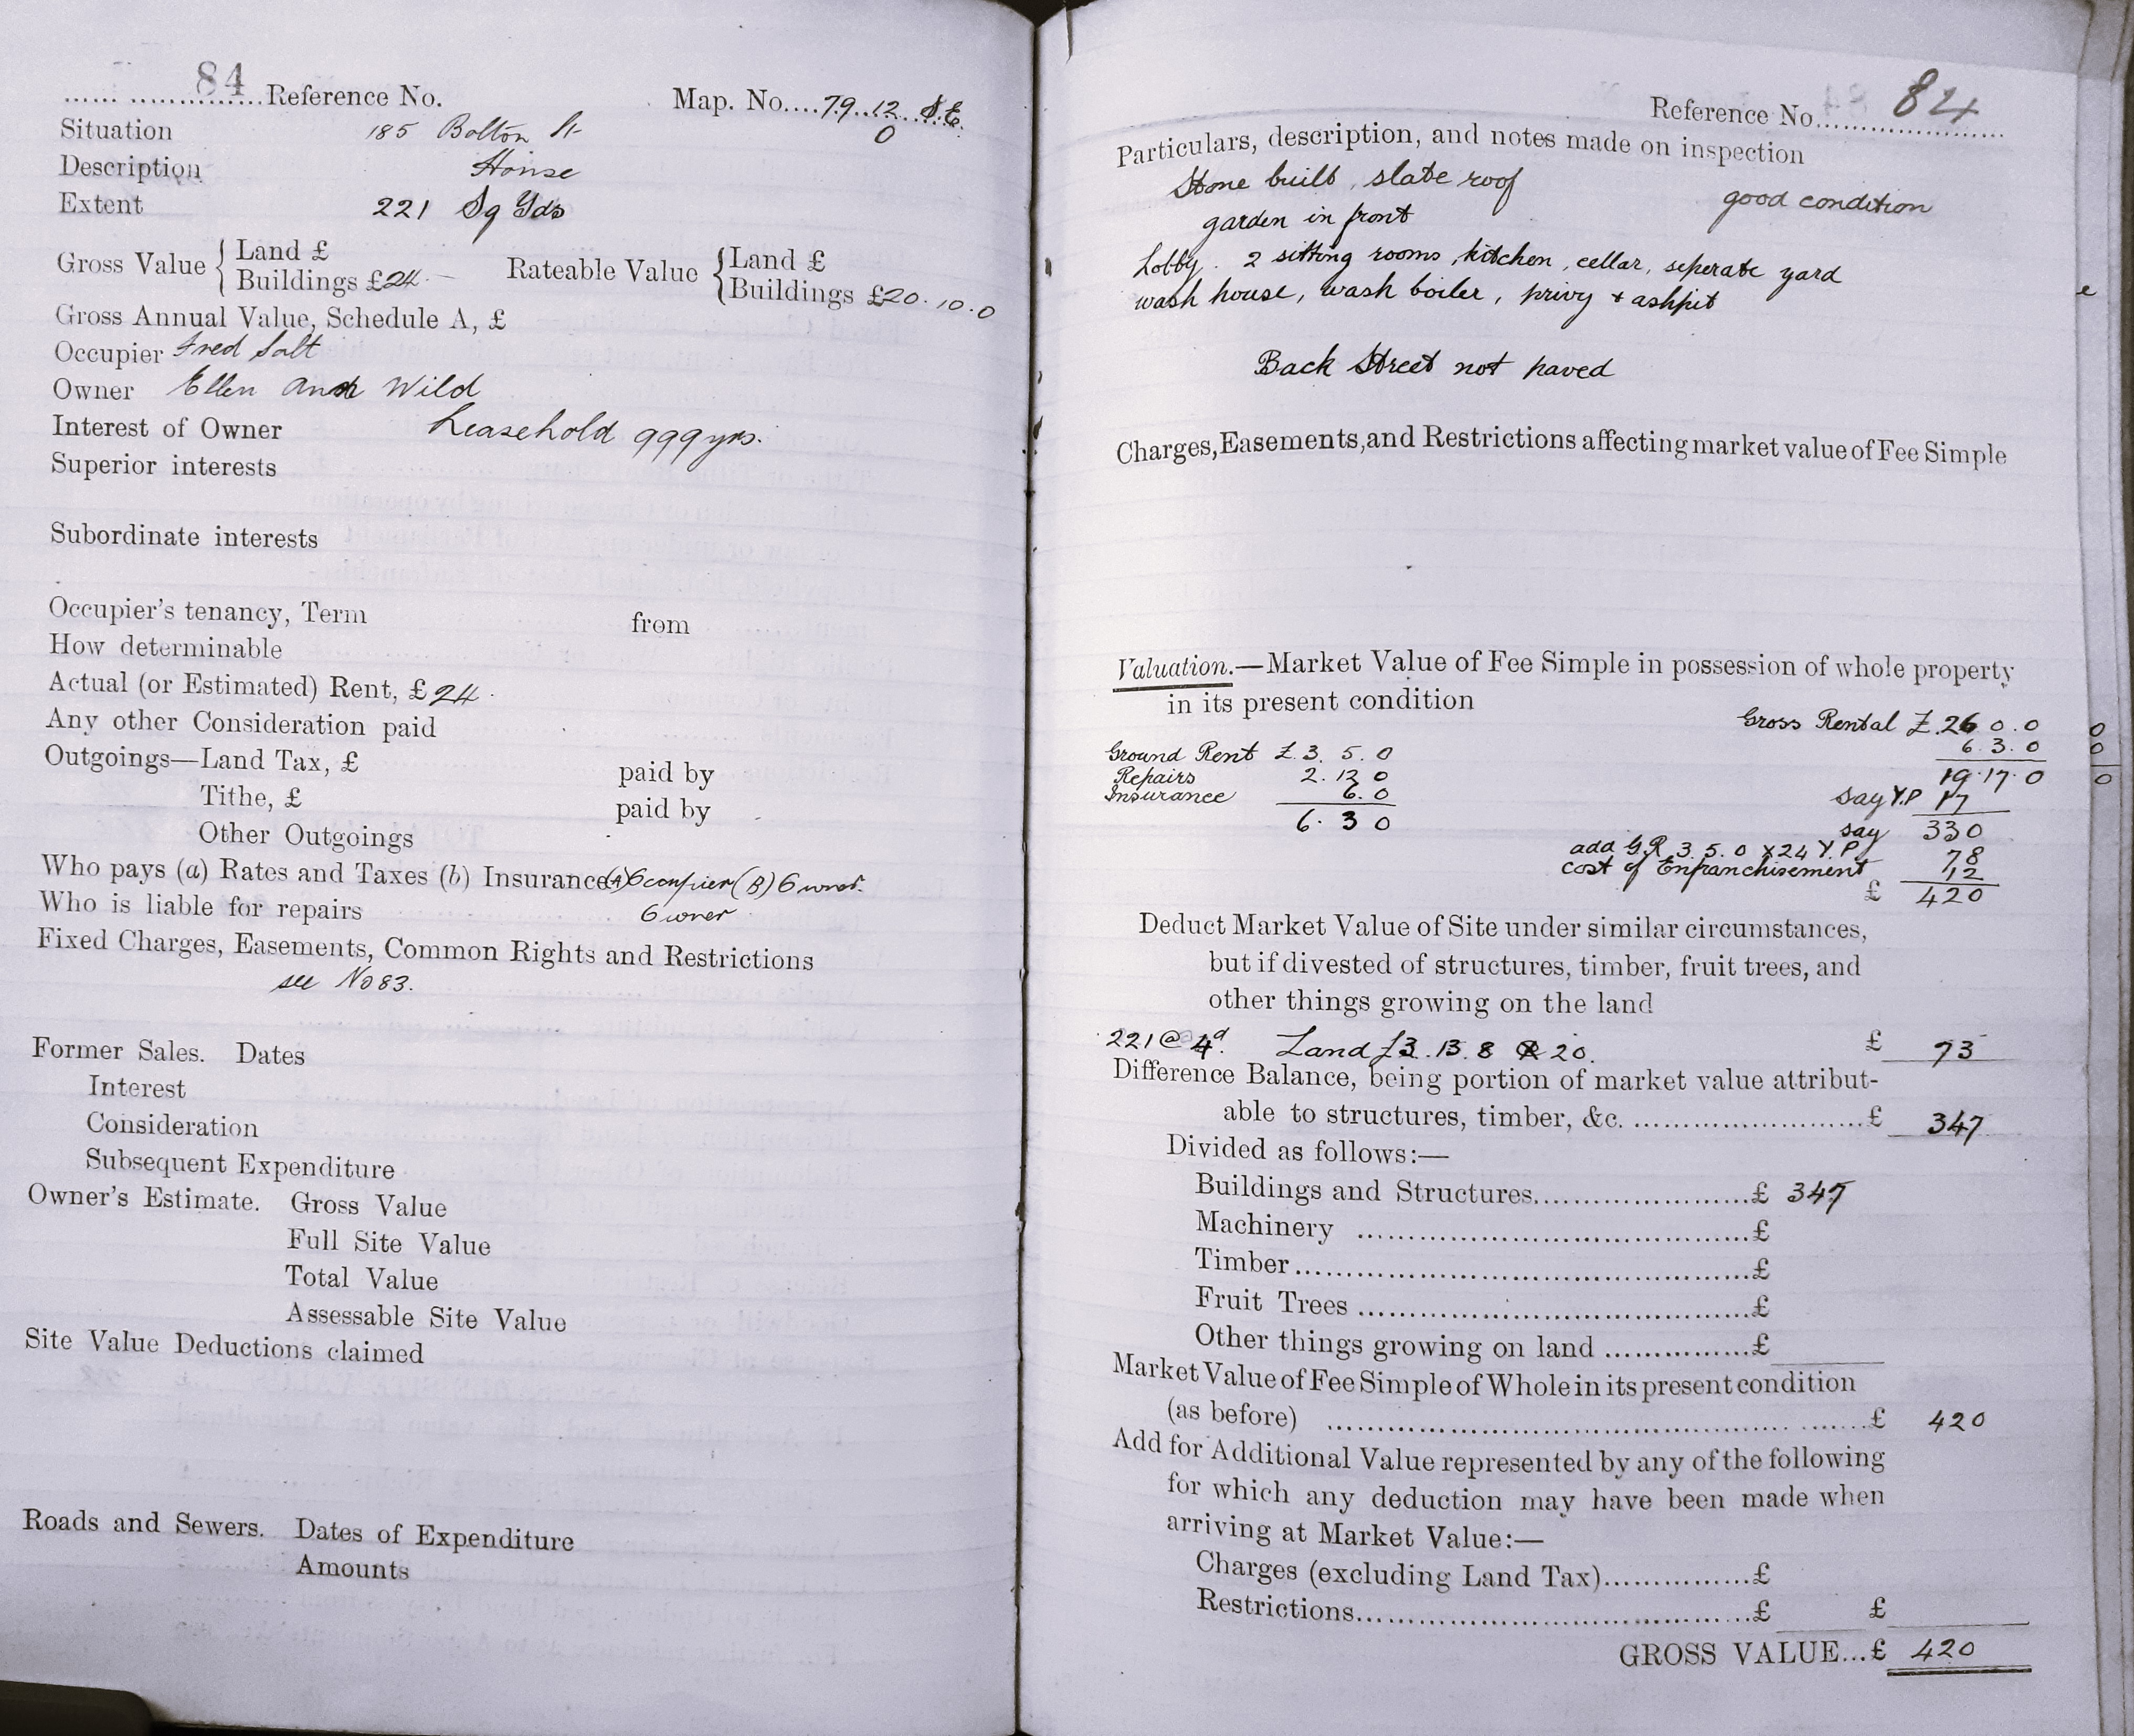 84 Reference No. Map. No....79..12 S.E.
0
Situation 185 Bolton St
Description House
Extent 221 Sq Yds
Gross Value { Land £
Buildings £24 — Rateable Value { Land £
Buildings £20.10.0
Gross Annual Value, Schedule A, £
Occupier Fred Salt
Owner Ellen Ann Wild
Interest of Owner Leasehold 999 yrs.
Superior interests
Subordinate interests
Occupier's tenancy, Term from
How determinable
Actual (or Estimated) Rent, £24.
Any other Consideration paid
Outgoings—Land Tax, £ paid by
Tithe, £ paid by
Other Outgoings
Who pays (a) Rates and Taxes (b) Insurance (A) Occupier (B) Owner.
Who is liable for repairs Owner
Fixed Charges, Easements, Common Rights and Restrictions
see No 83.
Former Sales. Dates
Interest
Consideration
Subsequent Expenditure
Owner's Estimate. Gross Value
Full Site Value
Total Value
Assessable Site Value
Site Value Deductions claimed
Roads and Sewers. Dates of Expenditure
Amounts
Reference No. 84
Particulars, description, and notes made on inspection
Stone built, slate roof good condition
garden in front
Lobby. 2 sitting rooms, kitchen, cellar, seperate yard
wash house, wash boiler, privy + ashpit
Back Street not paved
Charges, Easements, and Restrictions affecting market value of Fee Simple
Valuation.—Market Value of Fee Simple in possession of whole property
in its present condition
Gross Rental £.26 0.0
Ground Rent £.3. 5. 0 6.3.0
Repairs 2.12 0 19.17.0
Insurance 6.0 Say Y.P 17
6. 3 0 say 330
add G.R 3.5.0 x 24 Y.P 78
cost of Enfranchisement 12
£ 420
Deduct Market Value of Site under similar circumstances,
but if divested of structures, timber, fruit trees, and
other things growing on the land
221 @ 4d. Land £3.13.8 @ 20. £ 73
Difference Balance, being portion of market value attribut-
able to structures, timber, &c. ........................£ 347
Divided as follows:—
Buildings and Structures......................£ 347
Machinery ......................................£
Timber.............................................£
Fruit Trees ......................................£
Other things growing on land ...............£
Market Value of Fee Simple of Whole in its present condition
(as before) ......................................................£ 420
Add for Additional Value represented by any of the following
for which any deduction may have been made when
arriving at Market Value:—
Charges (excluding Land Tax)...............£
Restrictions.......................................£ £
GROSS VALUE...£ 420